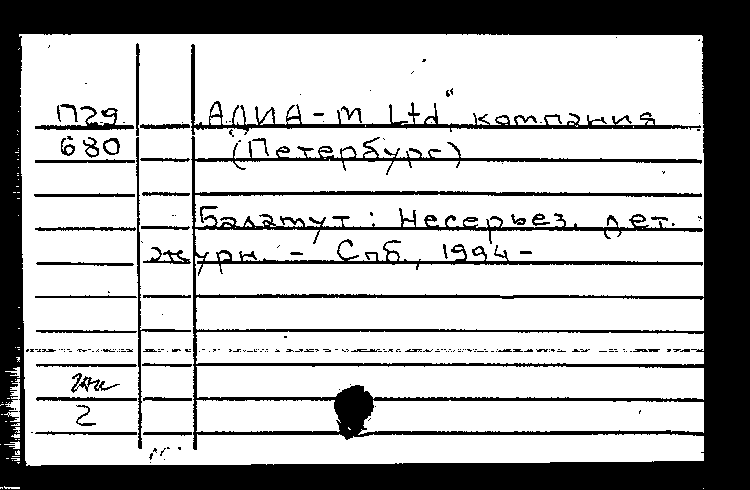 П29 „АДИА-М Ltd", компания
680 (Петербург)
Баламут: Несерьез. дет.
журн. - Спб., 1994-
2